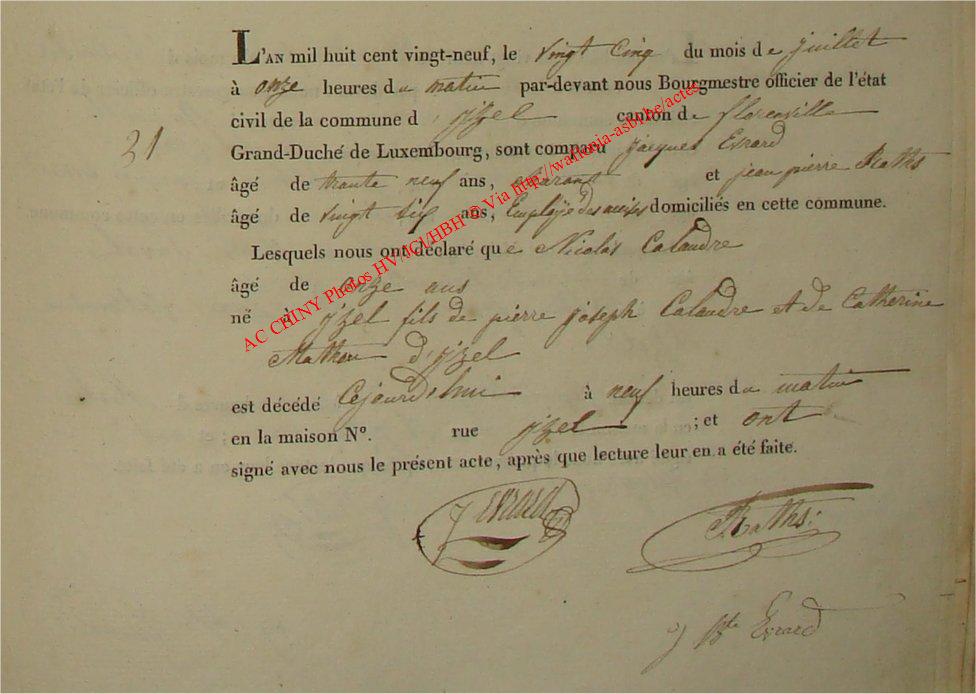 L'AN mil huit cent vingt-neuf, le vingt Cinq du mois de juillet
à onze heures du matin par-devant nous Bourgmestre officier de l'état
civil de la commune d'jzel canton de florenville
21
Grand-Duché de Luxembourg, sont comparu jacques Evrard
âgé de trante neuf ans, et jean pierre Raths
âgé de vingt six ans, Employé des accises domiciliés en cette commune.
Lesquels nous ont déclaré que Nicolas Calandre
âgé de onze ans
né à jzel fils de pierre joseph Calandre et de Catherine
Mathieu d'jzel
est décédé Cejourd'hui à neuf heures du matin
en la maison N°. rue jzel ; et ont
signé avec nous le présent acte, après que lecture leur en a été faite.
J Evrard
Raths
j Bte Evrard
AC CHINY Photos HV/JCl/HBH © Via http://wallonia-asbl.be/actes